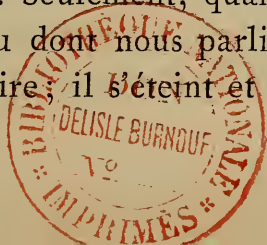 Seulement, qua
u dont nous parli
ire, il s'éteint et
BIBLIOTHEQUE NATIONALE
DELISLE BURNOUF
Vº
IMPRIMÉS